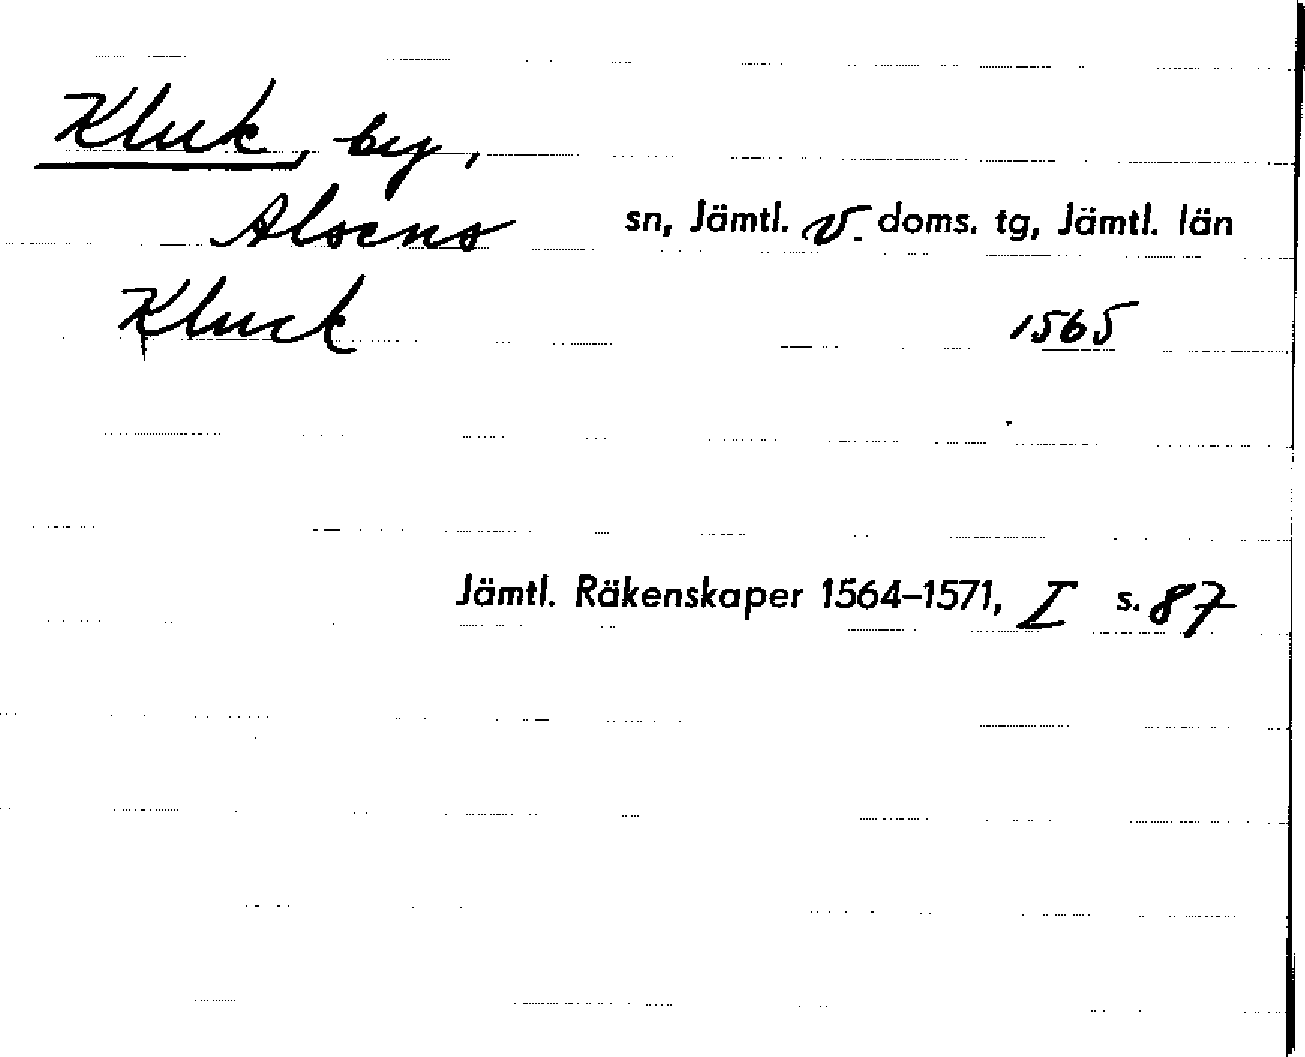 Kluk, by,
Alsens sn, Jämtl. v. doms. tg, Jämtl. län
Kluck 1565
Jämtl. Räkenskaper 1564–1571, I s. 87